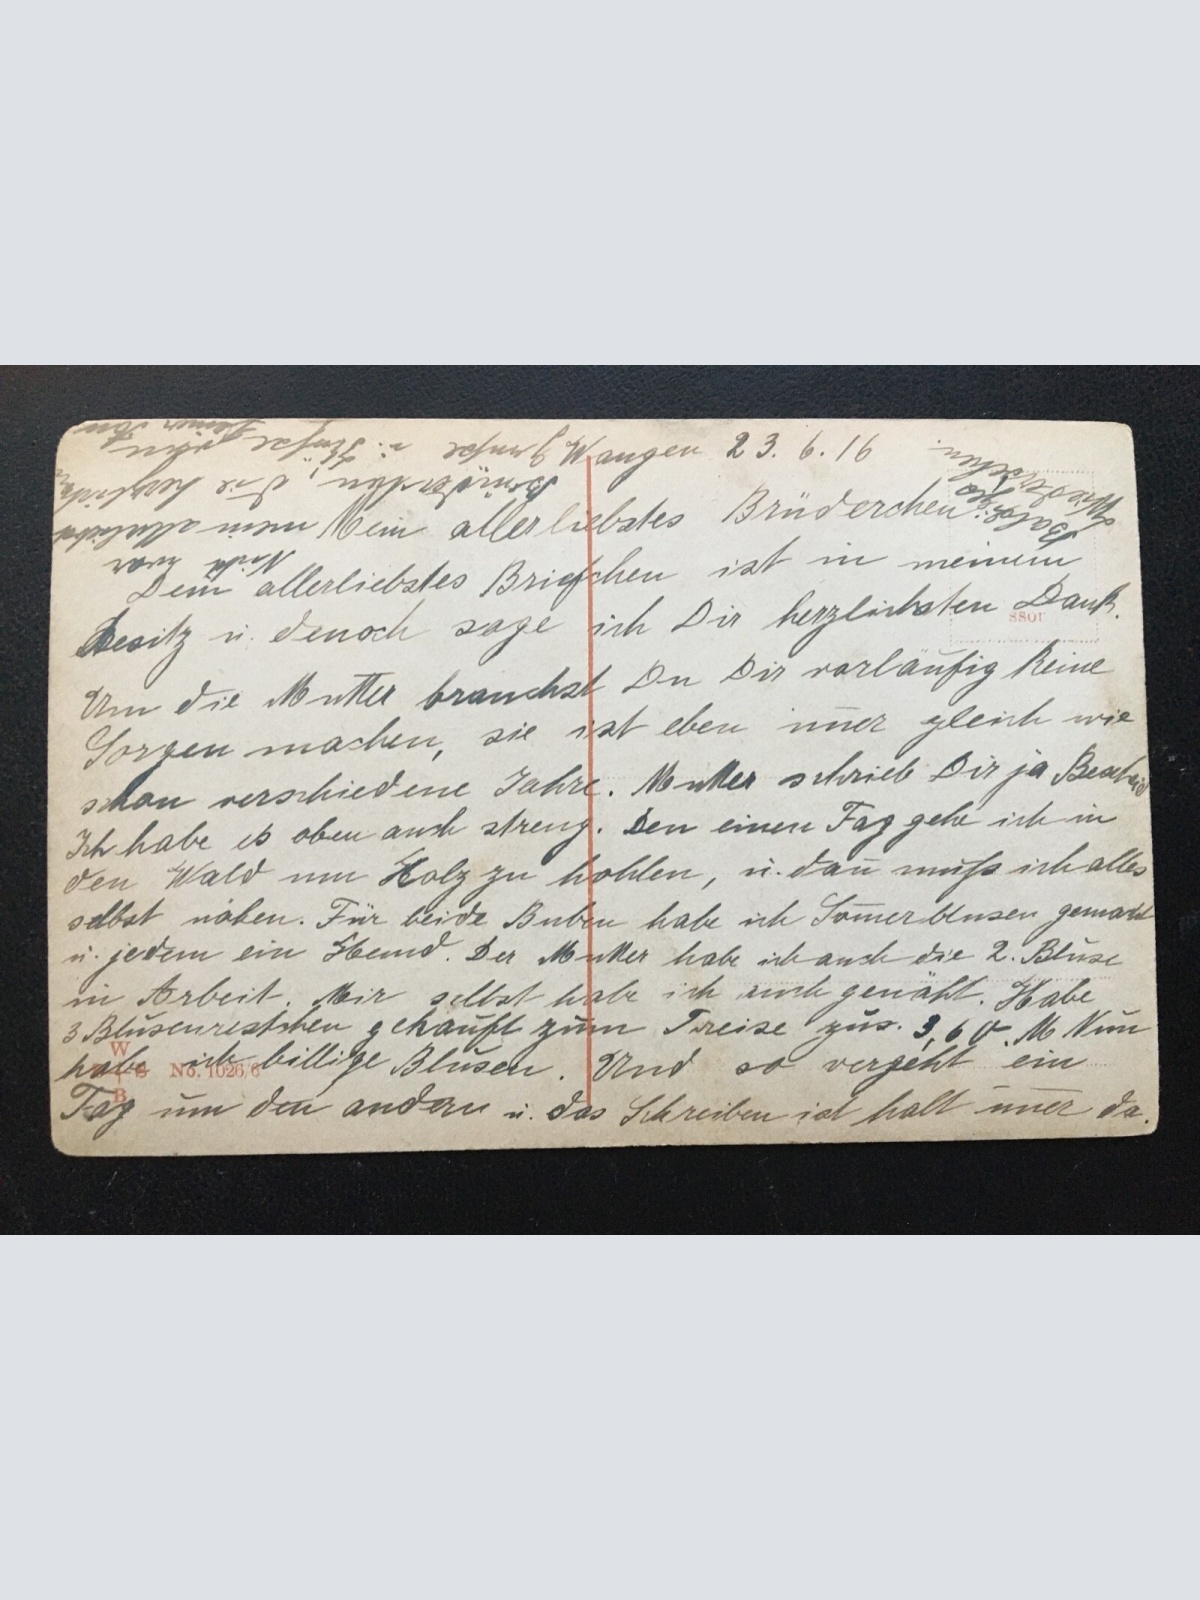 Wangen 23.6.16
Mein allerliebstes Brüderchen
Dein allerliebstes Briefchen ist in meinem
Besitz u. denoch sage ich Dir herzlichsten Dank.
Um die Mutter brauchst Du Dir vorläufig keine
Sorgen machen, sie ist eben im̄er gleich wie
schon verschiedene Jahre. Mutter schrieb Dir ja Bescheid
Ich habe es eben auch streng. Den einen Tag gehe ich in
den Wald um Holz zu hohlen, u. dan̄ muß ich alles
selbst nähen. Für beide Buben habe ich Som̄erblusen gemacht
u. jedem ein Hemd. Der Mutter habe ich auch die 2. Bluse
in Arbeit. Mir selbst habe ich auch genäht. Habe
3 Blusenrestchen gekauft zum Preise zus. 3,60 M Nun
habe ich billige Blusen. Und so vergeht ein
Tag um den andern u. das Schreiben ist halt im̄er da.
Nicht wahr
mein allerliebstes
Brüderchen, die herzlichsten
Grüße u. Küße
Deiner
Wiedersehen
W
B
No. 1026/6